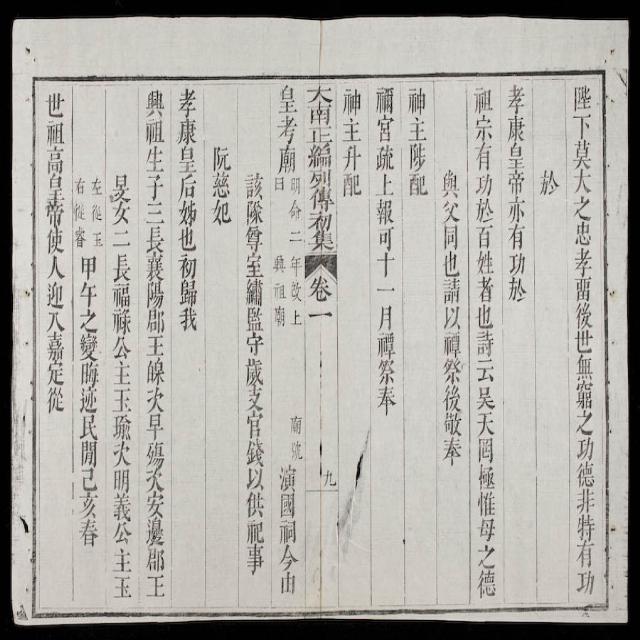 陛下莫大之忠孝畱後世無窮之功德非特有功
於
孝康皇帝亦有功於
祖宗有功於百姓者也詩云昊天罔極惟母之德
與父同也請以禫祭後敬奉
神主陟配
禰宮疏上報可十一月禫祭奉
神主升配
大南正編列傳初集 卷一 九
皇考廟 明命二年改上廟號曰興祖廟 演國祠今由
該隊尊室繡監守歲支官錢以供祀事
阮慈妃
孝康皇后姊也初歸我
興祖生子三長襄陽郡王㬶次早殤次安邊郡王
旻女二長福祿公主玉瑜次明義公主玉
左從玉右從睿 甲午之變晦迹民閒己亥春
世祖高皇帝使人迎入嘉定從